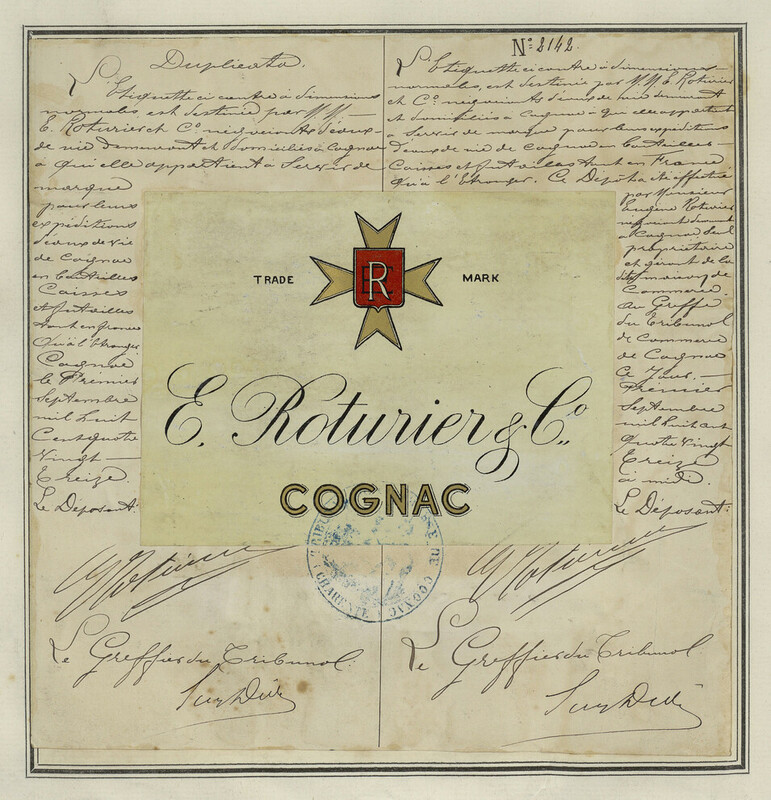 Duplicata.
L'Etiquette ci contre à dimensions
normales, est destinée par M.M.
E. Roturier et Cº négociants d'eaux-
de vie demeurant et domiciliés à Cognac
à qui elle appartient à servir de
marque
pour leurs
expéditions
d'eaux de vie
de Cognac
en bouteilles
Caisses
et futailles
tant en France
qu'à l'étranger.
Cognac
le Premier
Septembre
mil huit
Cent quatre
Vingt —
Treize.
Le Déposant:
Le Greffier du Tribunal
Nº 2142.
L'Etiquette ci contre à dimensions
normales, est destinée par M.M. E. Roturier
et Cº négociants d'eaux de vie demeurant
et domiciliés à Cognac à qui elle appartient
à servir de marque pour leurs expéditions
d'eaux de vie de Cognac en bouteilles —
Caisses et futailles tant en France
qu'à l'Etranger. Ce Dépôt a été effectué
par Monsieur
Eugène Roturier
négociant demeurant
à Cognac seul
propriétaire
et gérant de la
dite maison de
Commerce.
au Greffe
du Tribunal
de Commerce
de Cognac
Ce Jour. —
Premier
Septembre
mil huit cent
quatre vingt
treize
à midi.
Le Déposant:
Le Greffier du Tribunal
TRADE MARK
R
E. Roturier & Cº.
COGNAC
DE COGNAC
CHARENTE